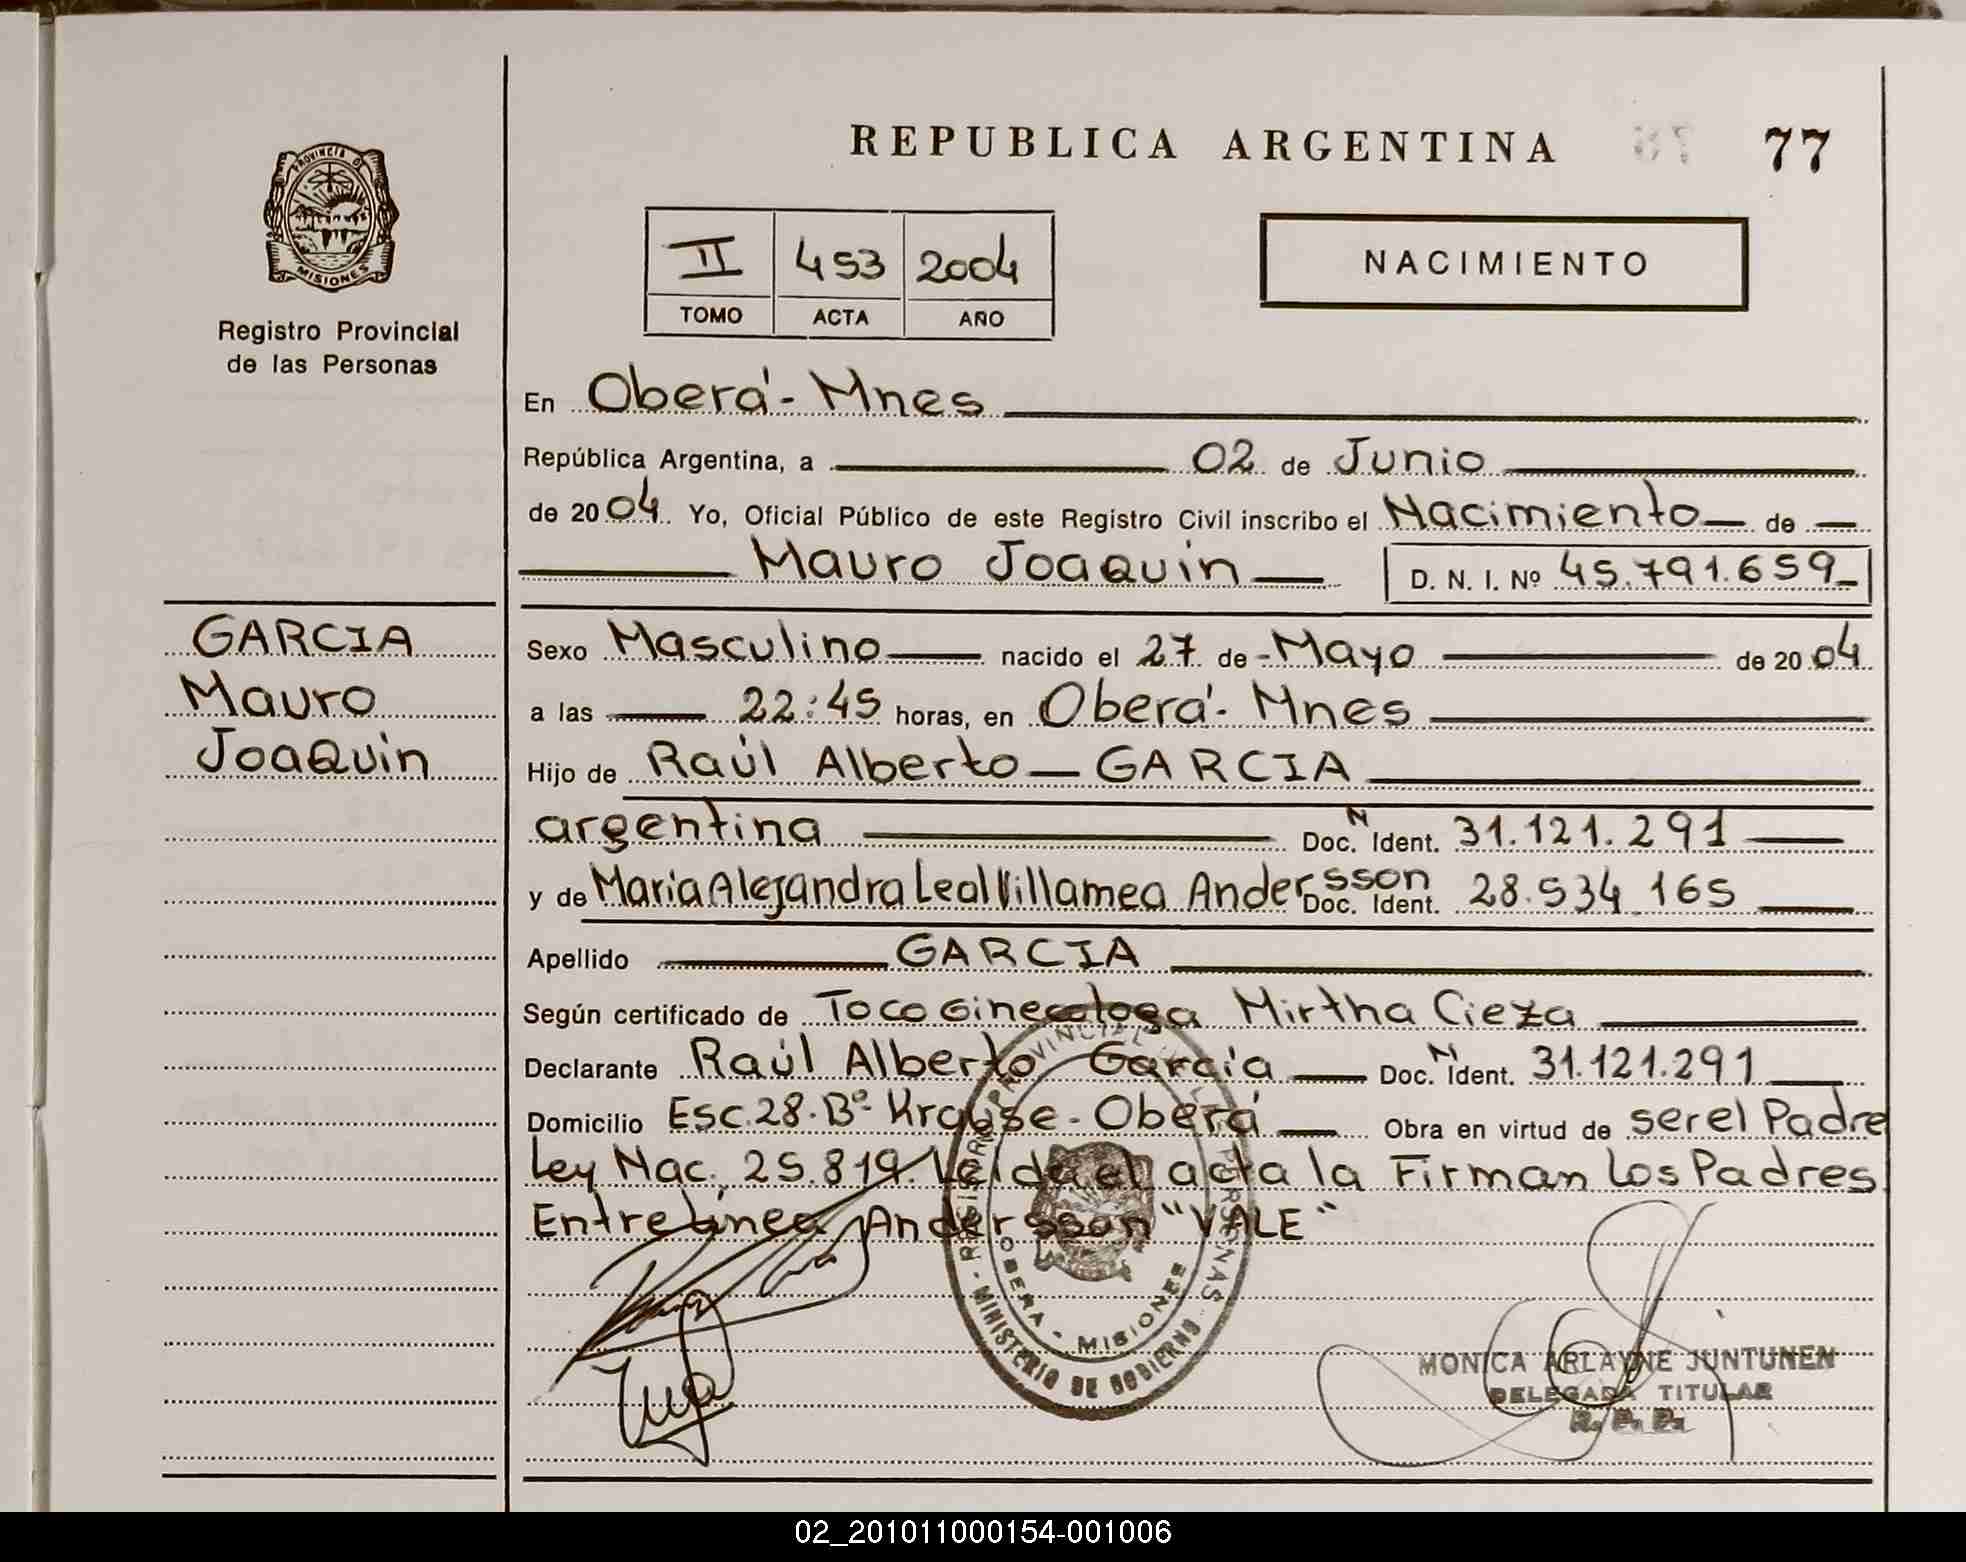 REPUBLICA ARGENTINA 77
PROVINCIA D
MISIONES
Registro Provincial
de las Personas
II 453 2004
TOMO ACTA AÑO
NACIMIENTO
GARCIA
Mauro
Joaquin
En Oberá - Mnes
República Argentina, a 02 de Junio
de 2004. Yo, Oficial Público de este Registro Civil inscribo el Nacimiento de
Mauro Joaquin D. N. I. Nº 45.791.659
Sexo Masculino nacido el 27 de Mayo de 2004
a las 22:45 horas, en Oberá - Mnes
Hijo de Raúl Alberto GARCIA
argentina Doc. N Ident. 31.121.291
y de Maria Alejandra Leal Villamea Andersson Doc. Ident. 28.534.165
Apellido GARCIA
Según certificado de Tocoginecologa Mirtha Cieza
Declarante Raúl Alberto García Doc. N Ident. 31.121.291
Domicilio Esc. 28. Bº Krause - Oberá Obra en virtud de ser el Padre
Ley Nac. 25.819. Leida el acta la Firman Los Padres
Entrelinea Andersson "VALE"
REGISTRO PROVINCIAL DE LAS PERSONAS - MINISTERIO DE GOBIERNO
OBERA - MISIONES
MONICA ARLAYNE JUNTUNEN
DELEGADA TITULAR
R. P. P.
02_201011000154-001006